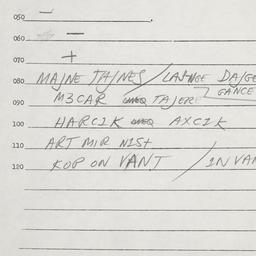 050 —
060 —
070 +
080 MAJNE TAJNES / LAJNGE DAJGE
090 M3CAR TAJERE GANCE
100 HARCZK AXCZK
110 ART MIR NIST
120 KOP ON VANT / IN VAN